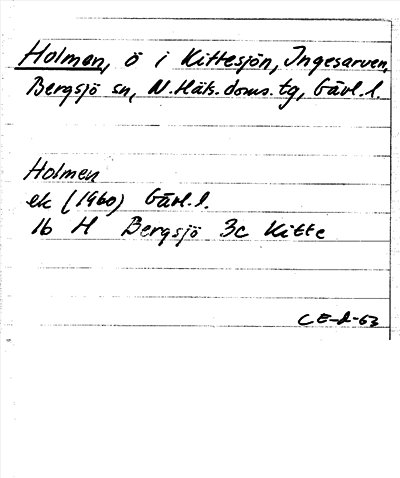 Holmen, ö i Kittesjön, Ingesarven,
Bergsjö sn, N.Häls.doms.tg, Gävl.l.
Holmen
ek (1960) Gävl.l.
16 H Bergsjö 3c Kitte